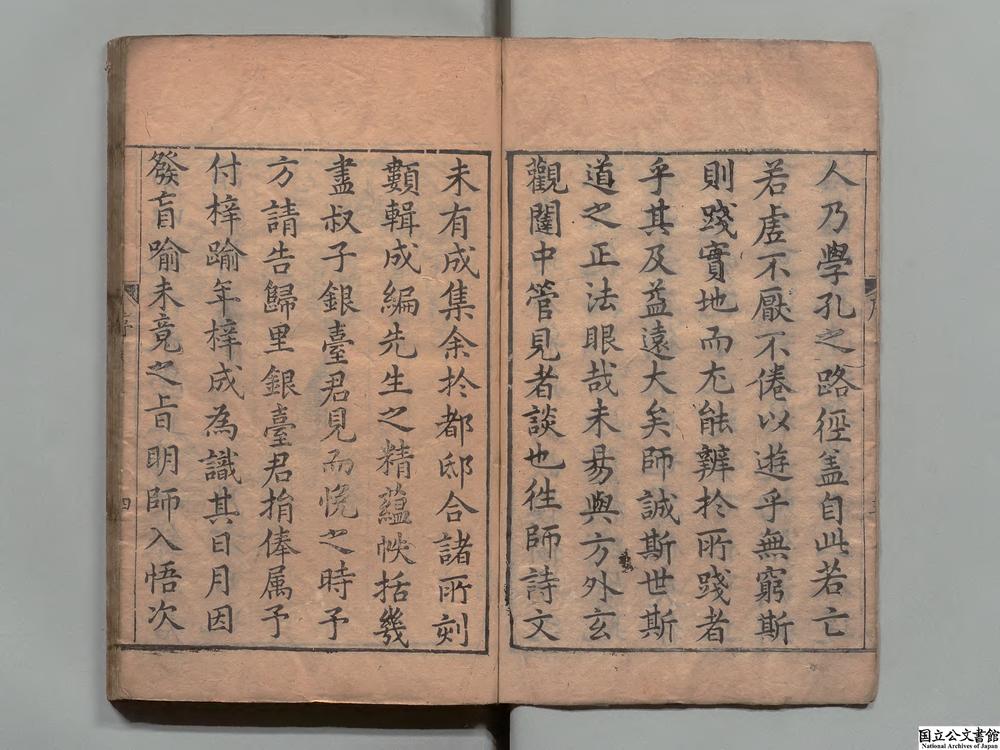 人乃學孔之路徑盖自此若亡
若虛不厭不倦以遊乎無窮斯
則踐實地而尤能辨於所踐者
乎其及益遠大矣師誠斯世斯
道之正法眼哉未易與方外玄
觀闥中管見者談也徃師詩文
未有成集余於都邸合諸所刻
纇輯成編先生之精蘊帙括幾
盡叔子銀臺君見而悅之時予
方請告歸里銀臺君捐俸属予
付梓踰年梓成為識其日月因
發盲喻未竟之旨明師入悟次
序
四
国立公文書館
National Archives of Japan